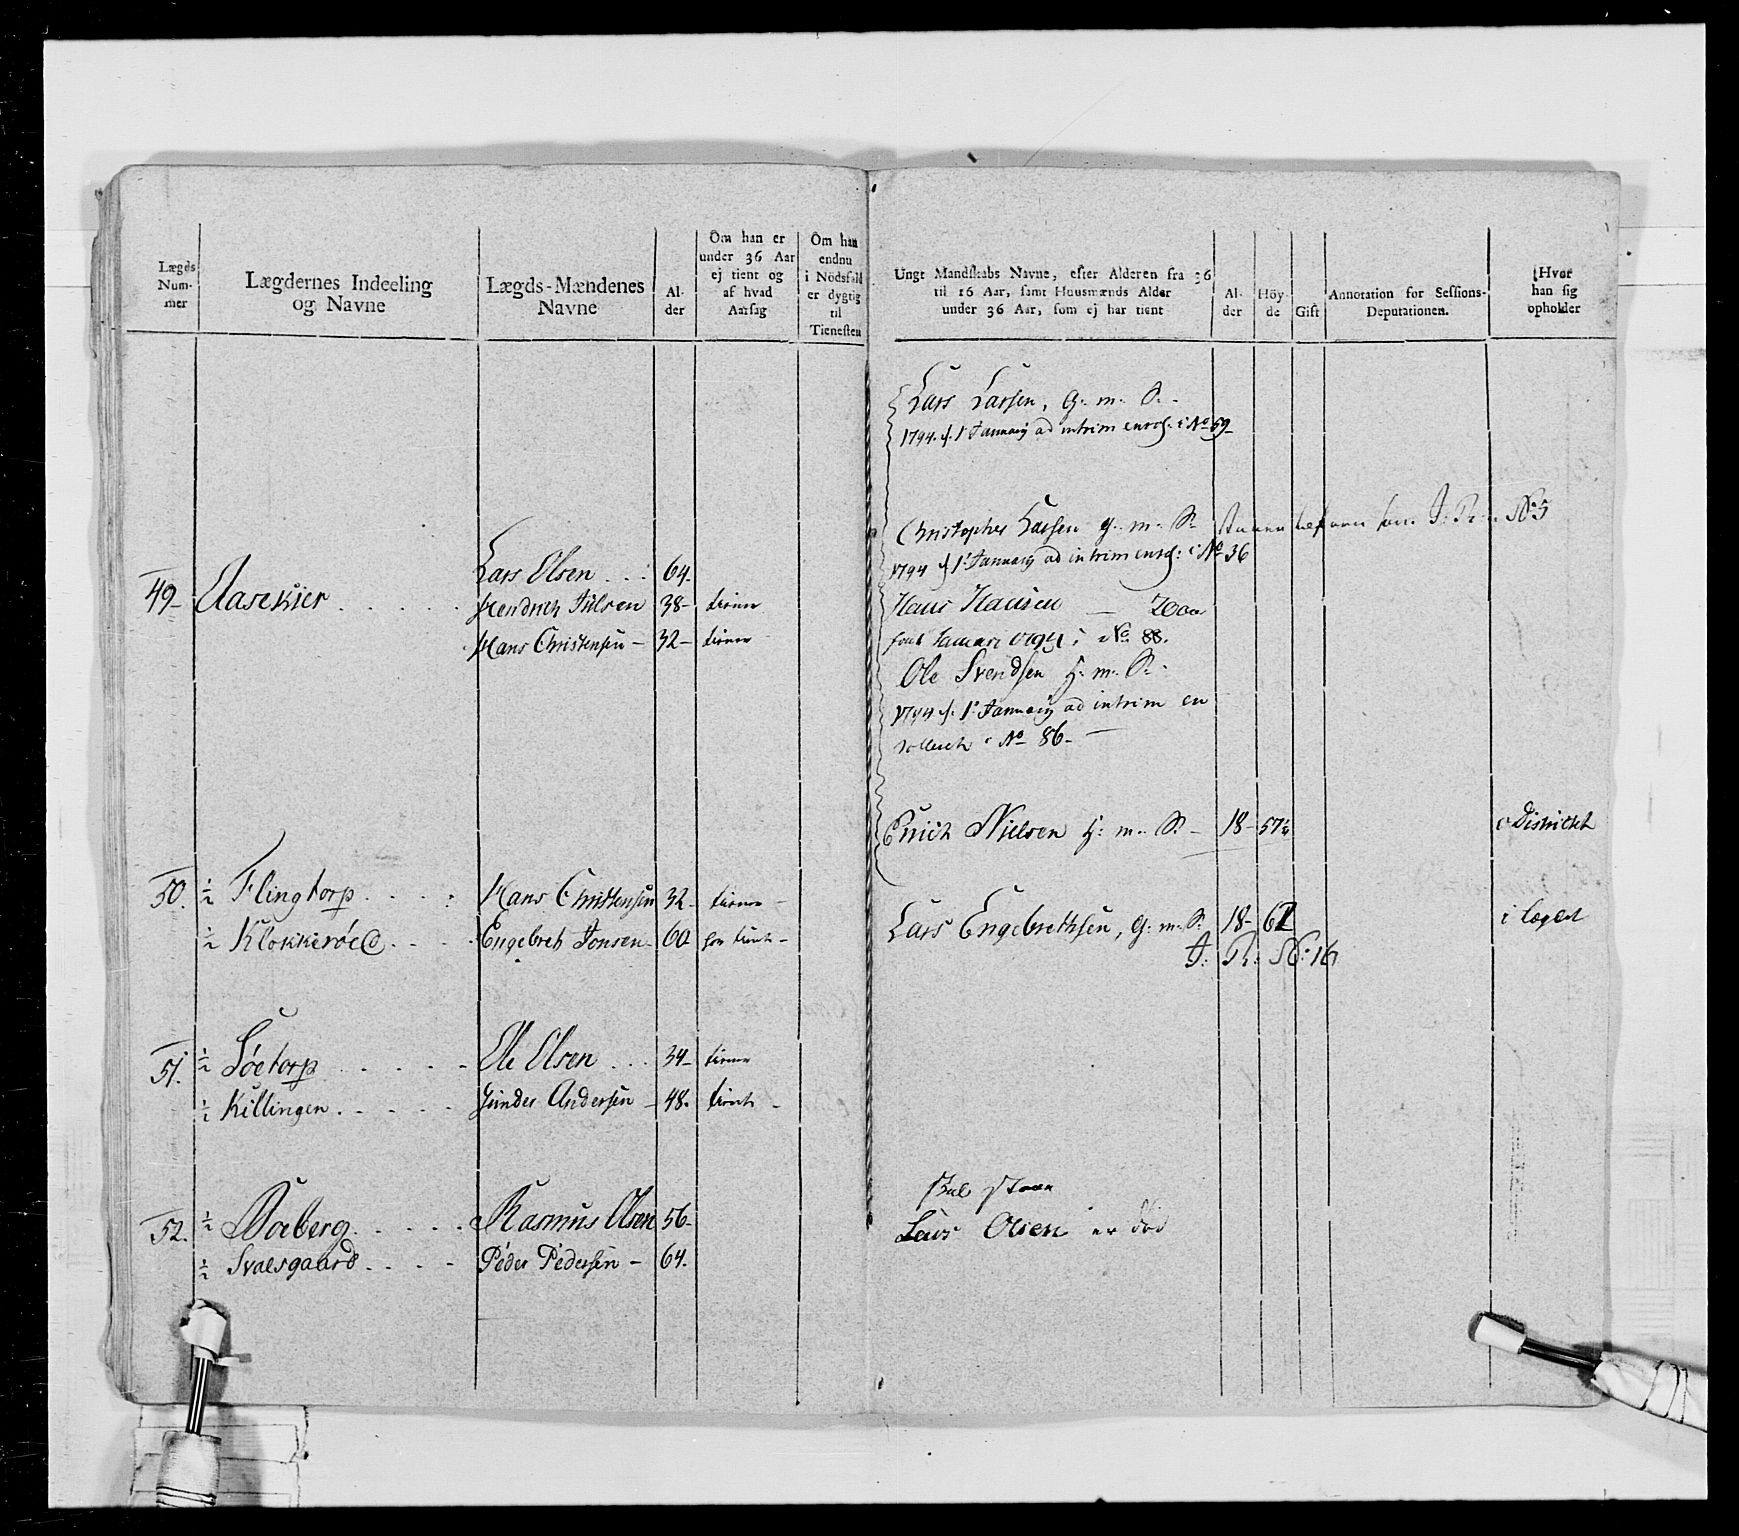 Lægds Num- mer
Lægdernes Indeeling og Navne
Lægds-Mændenes Navne
Al- der
Om han er under 36 Aar ej tient og af hvad Aarsag
Om han endnu i Nödsfald er dygtig til Tienesten
49- Aasekier Lars Olsen 64-
Hendrich Julsen 38- tiener
Hans Christensen - 32- tiener
50. ½ Flingtorp Hans Christensen 32- tiener -
½ Klokkeröed Engebret Jonsen- 60 har tient -
51. ½ Söetorp Ole Olsen 34- tiener
½ Killingen Gunder Andersen - 48. tient -
52. ½ Rasmus Olsen 56-
½ Svalsgaard Peder Pedersen - 64.
Ungt Mandskabs Navne, efter Alderen fra 36 til 16 Aar, samt Huusmænds Alder under 36 Aar, som ej har tient
Al- der
Höy- de
Gift
Annotation for Sessions- Deputationen.
Hvor han sig opholder
Lars Larsen, G. m. S. -
1794. d. 1 Januarij ad intrim enrol. i No 59-
Christopher Larsen G. m. S. J. R. No 5
1794 d 1 Januarij ad intrim enrol: i No 36
Hans Hansen
Januari 1794 i No 88.
Ole Svendsen H. m. S. -
1794 d. 1 Januarij ad intrim en
rollerét i No 86- -
Erich Nielsen H: m. S. - 18- 57½ i Districkt
Lars Engebrethsen, G: m. S. 18- 62 i læget
J: R: No: 16
Skal staae
Lars Olsen er död